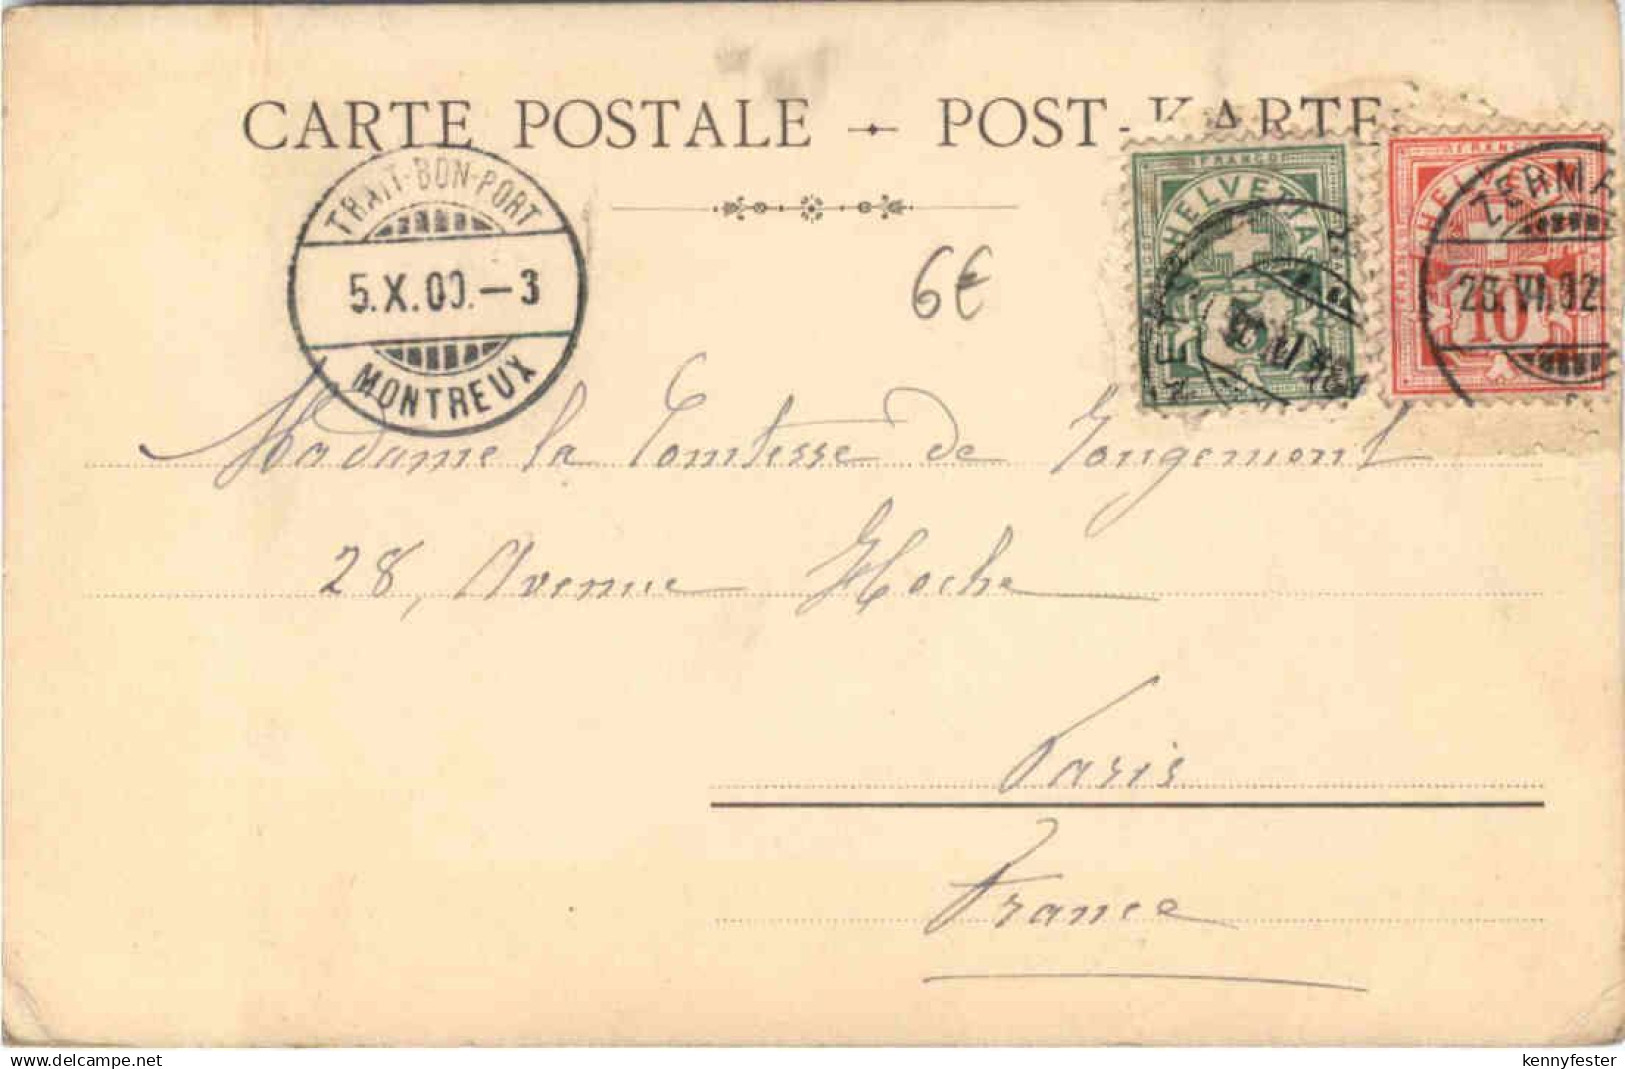 CARTE POSTALE — POST-KARTE
TRAIT-BON-PORT
5.X.00.–3
MONTREUX
6€
FRANCO
HELVETIA
5
FRANCO
HELVE
ZERMA
25.VI.02
10
Madame la Comtesse de Gougemont
28, Avenue Hoche
Paris
France
www.delcampe.net
kennyfester